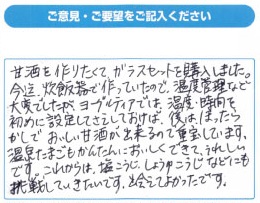 ご意見・ご要望をご記入ください
甘酒を作りたくて、ガラスセットを購入しました。
今迄、炊飯器で作っていたので、温度管理など
大変でしたが、ヨーグルティアでは、温度・時間を
初めに設定してさえしておけば、後は、ほったら
かしで おいしい甘酒が出来るので重宝しています。
温泉たまごもかんたんにおいしくできて、うれしい
です。これからは、塩こうじ、しょうゆこうじなどにも
挑戦していきたいです。出会えてよかったです。